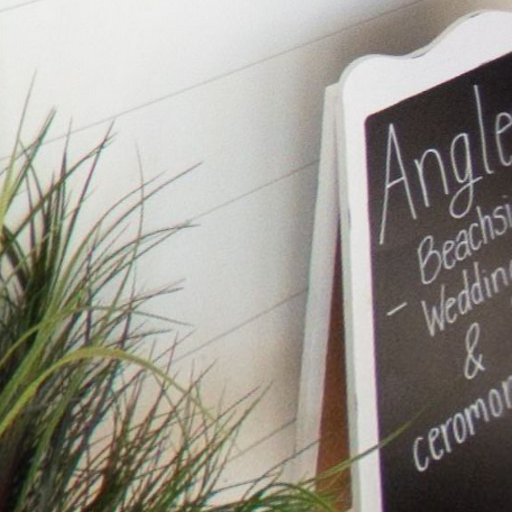 Angle
Beachsi
- Wedding
&
ceromon